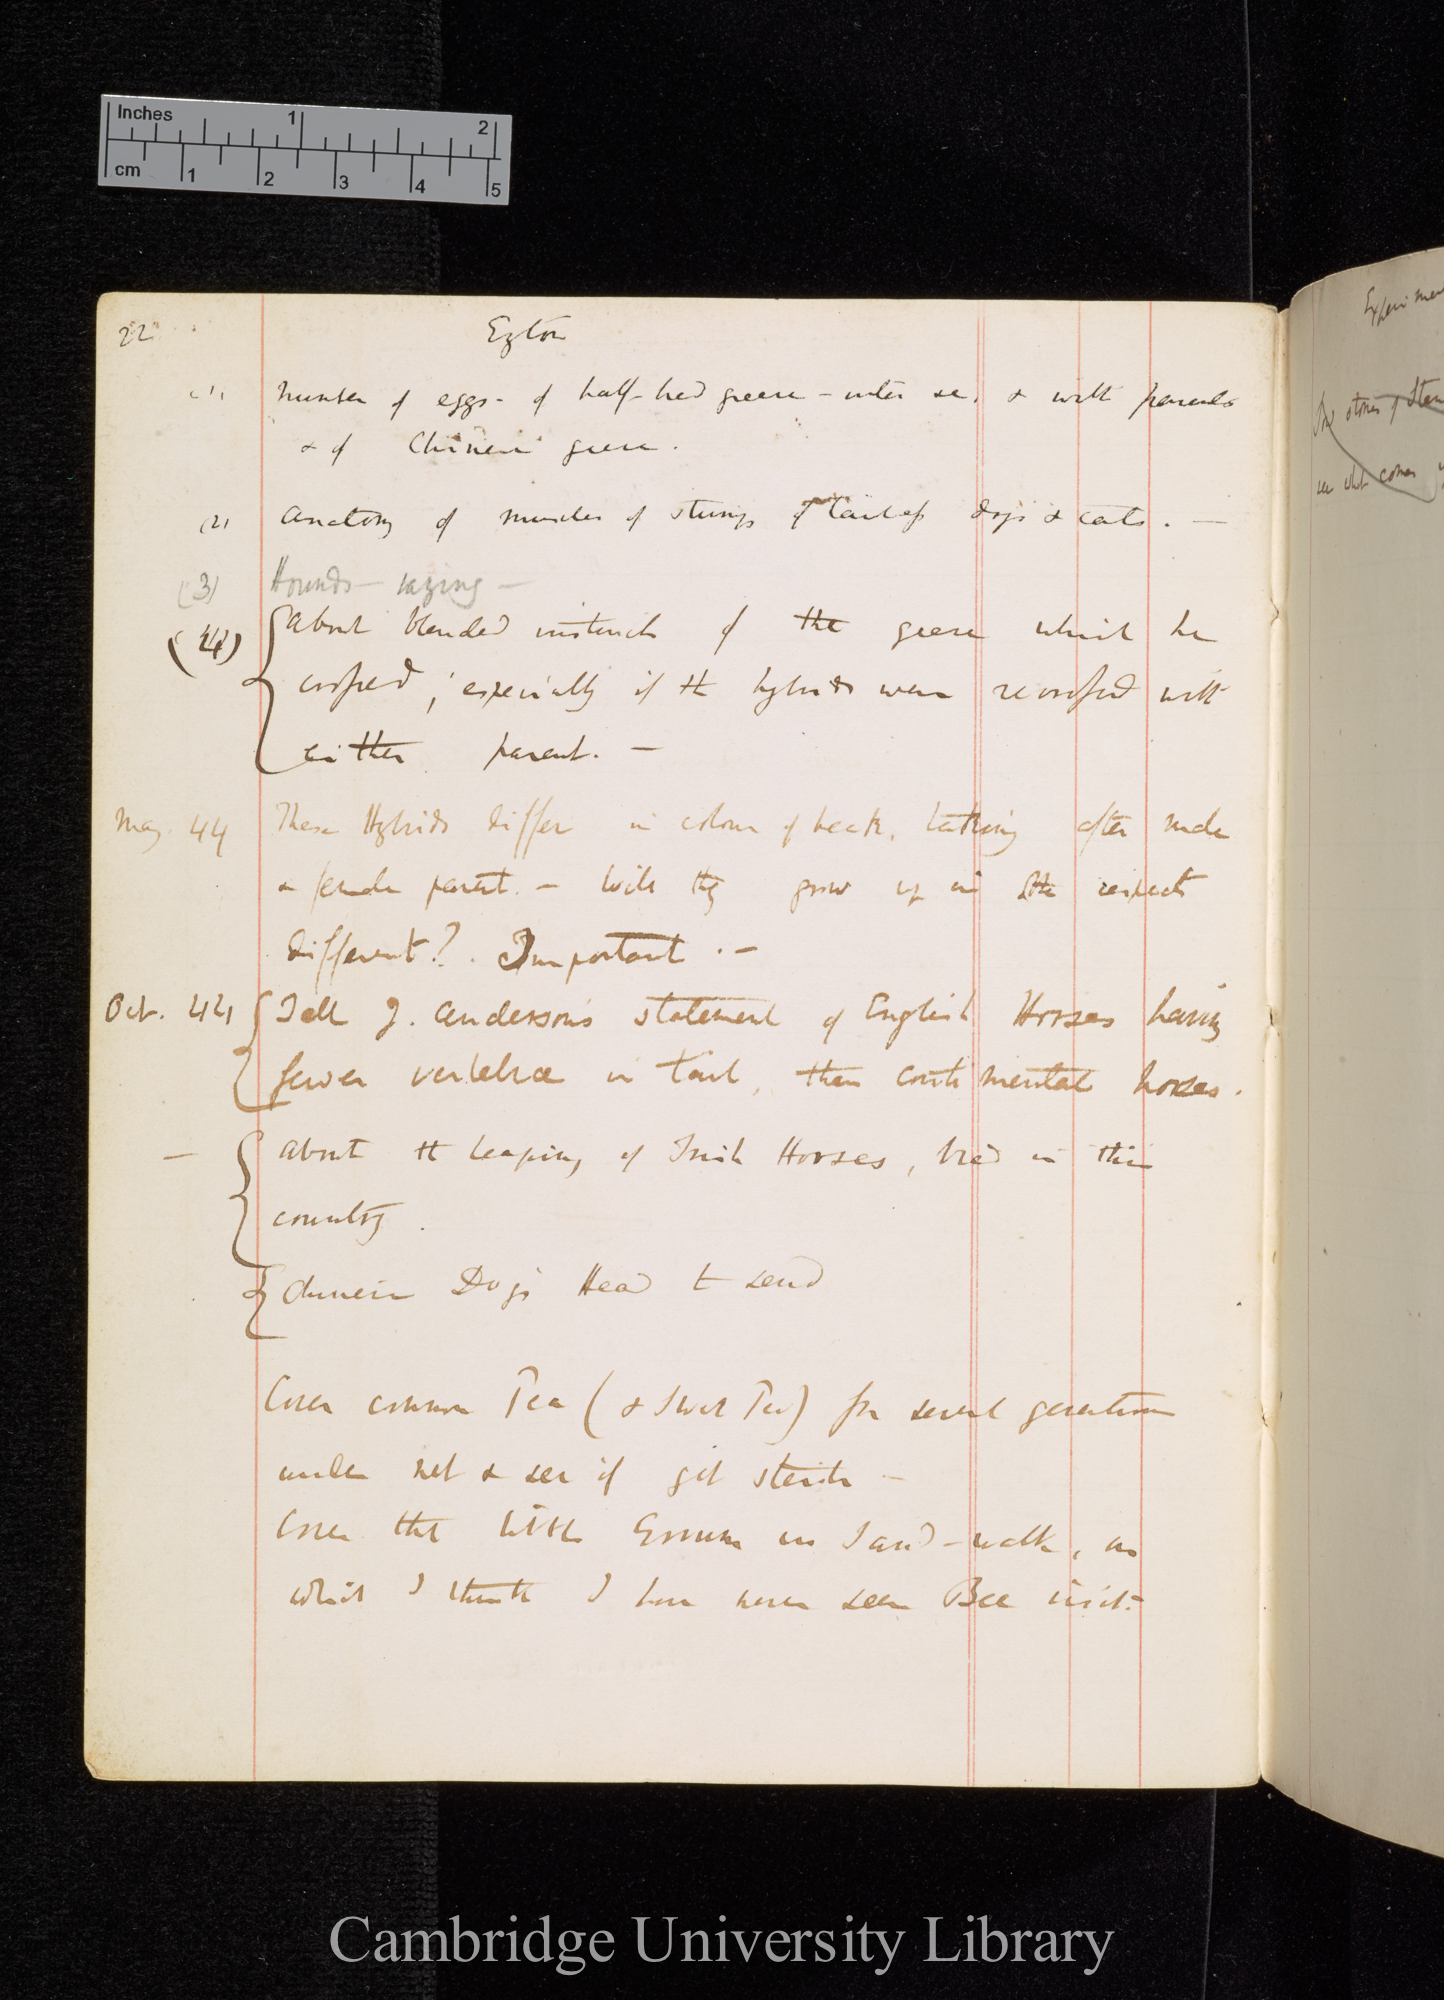 Inches 1 2
cm 1 2 3 4 5
22 Eyton
(1) Number of eggs - of half-bred geese - inter se, & with parents
& of Chinese geese.
(2) Anatomy of muscles of stumps of tailless dogs & cats. —
(3) Hounds —
(4) About blended instincts of the geese which he
crossed; especially if the hybrids were recrossed with
either parent. —
May. 44 These Hybrids differ in colour of beak, taking after male
& female parent. — Will they grow up in other respects
different?. Important. —
Oct. 44 Tell J. Anderson's statement of English Horses having
fewer vertebrae in tail, than continental horses.
— About the leaping of Irish Horses, bred in this
country.
Chinese Dog's Head to send
Cover common Pea (& Sweet Pea) for several generations
under net & see if get sterile —
Cover the little Geranium in Sand-walk, on
which I think I have never seen Bee visit.
Experimen
stones of
see what comes
Cambridge University Library